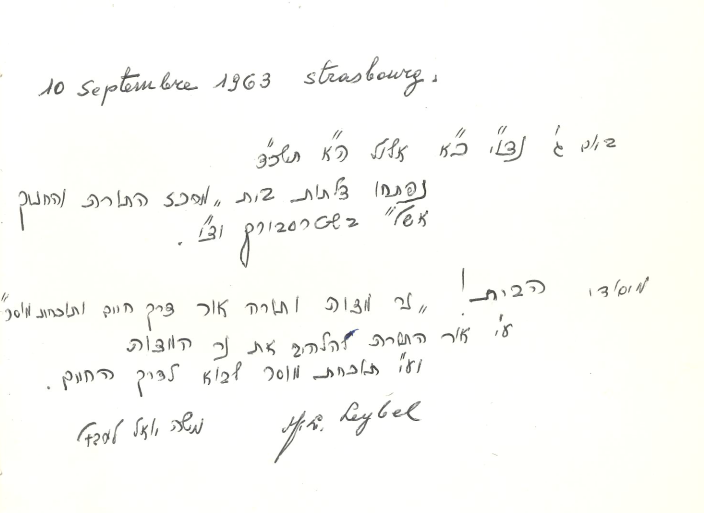 10 Septembre 1963 Strasbourg.
ביום ג' נצו"י כ"א אלול ה'א
נפתחו דלתות בית "מרכז התורה והחנוך
בשטרסבורג
הבית! "נר מצות ותורה אור דרך חיים ותוכחת מוסר"
ע"י אור התורה להלהיב את נר המצות
וע"י תוכחת מוסר לבוא לדרך החיים.
משה יואל לייבל Leybel